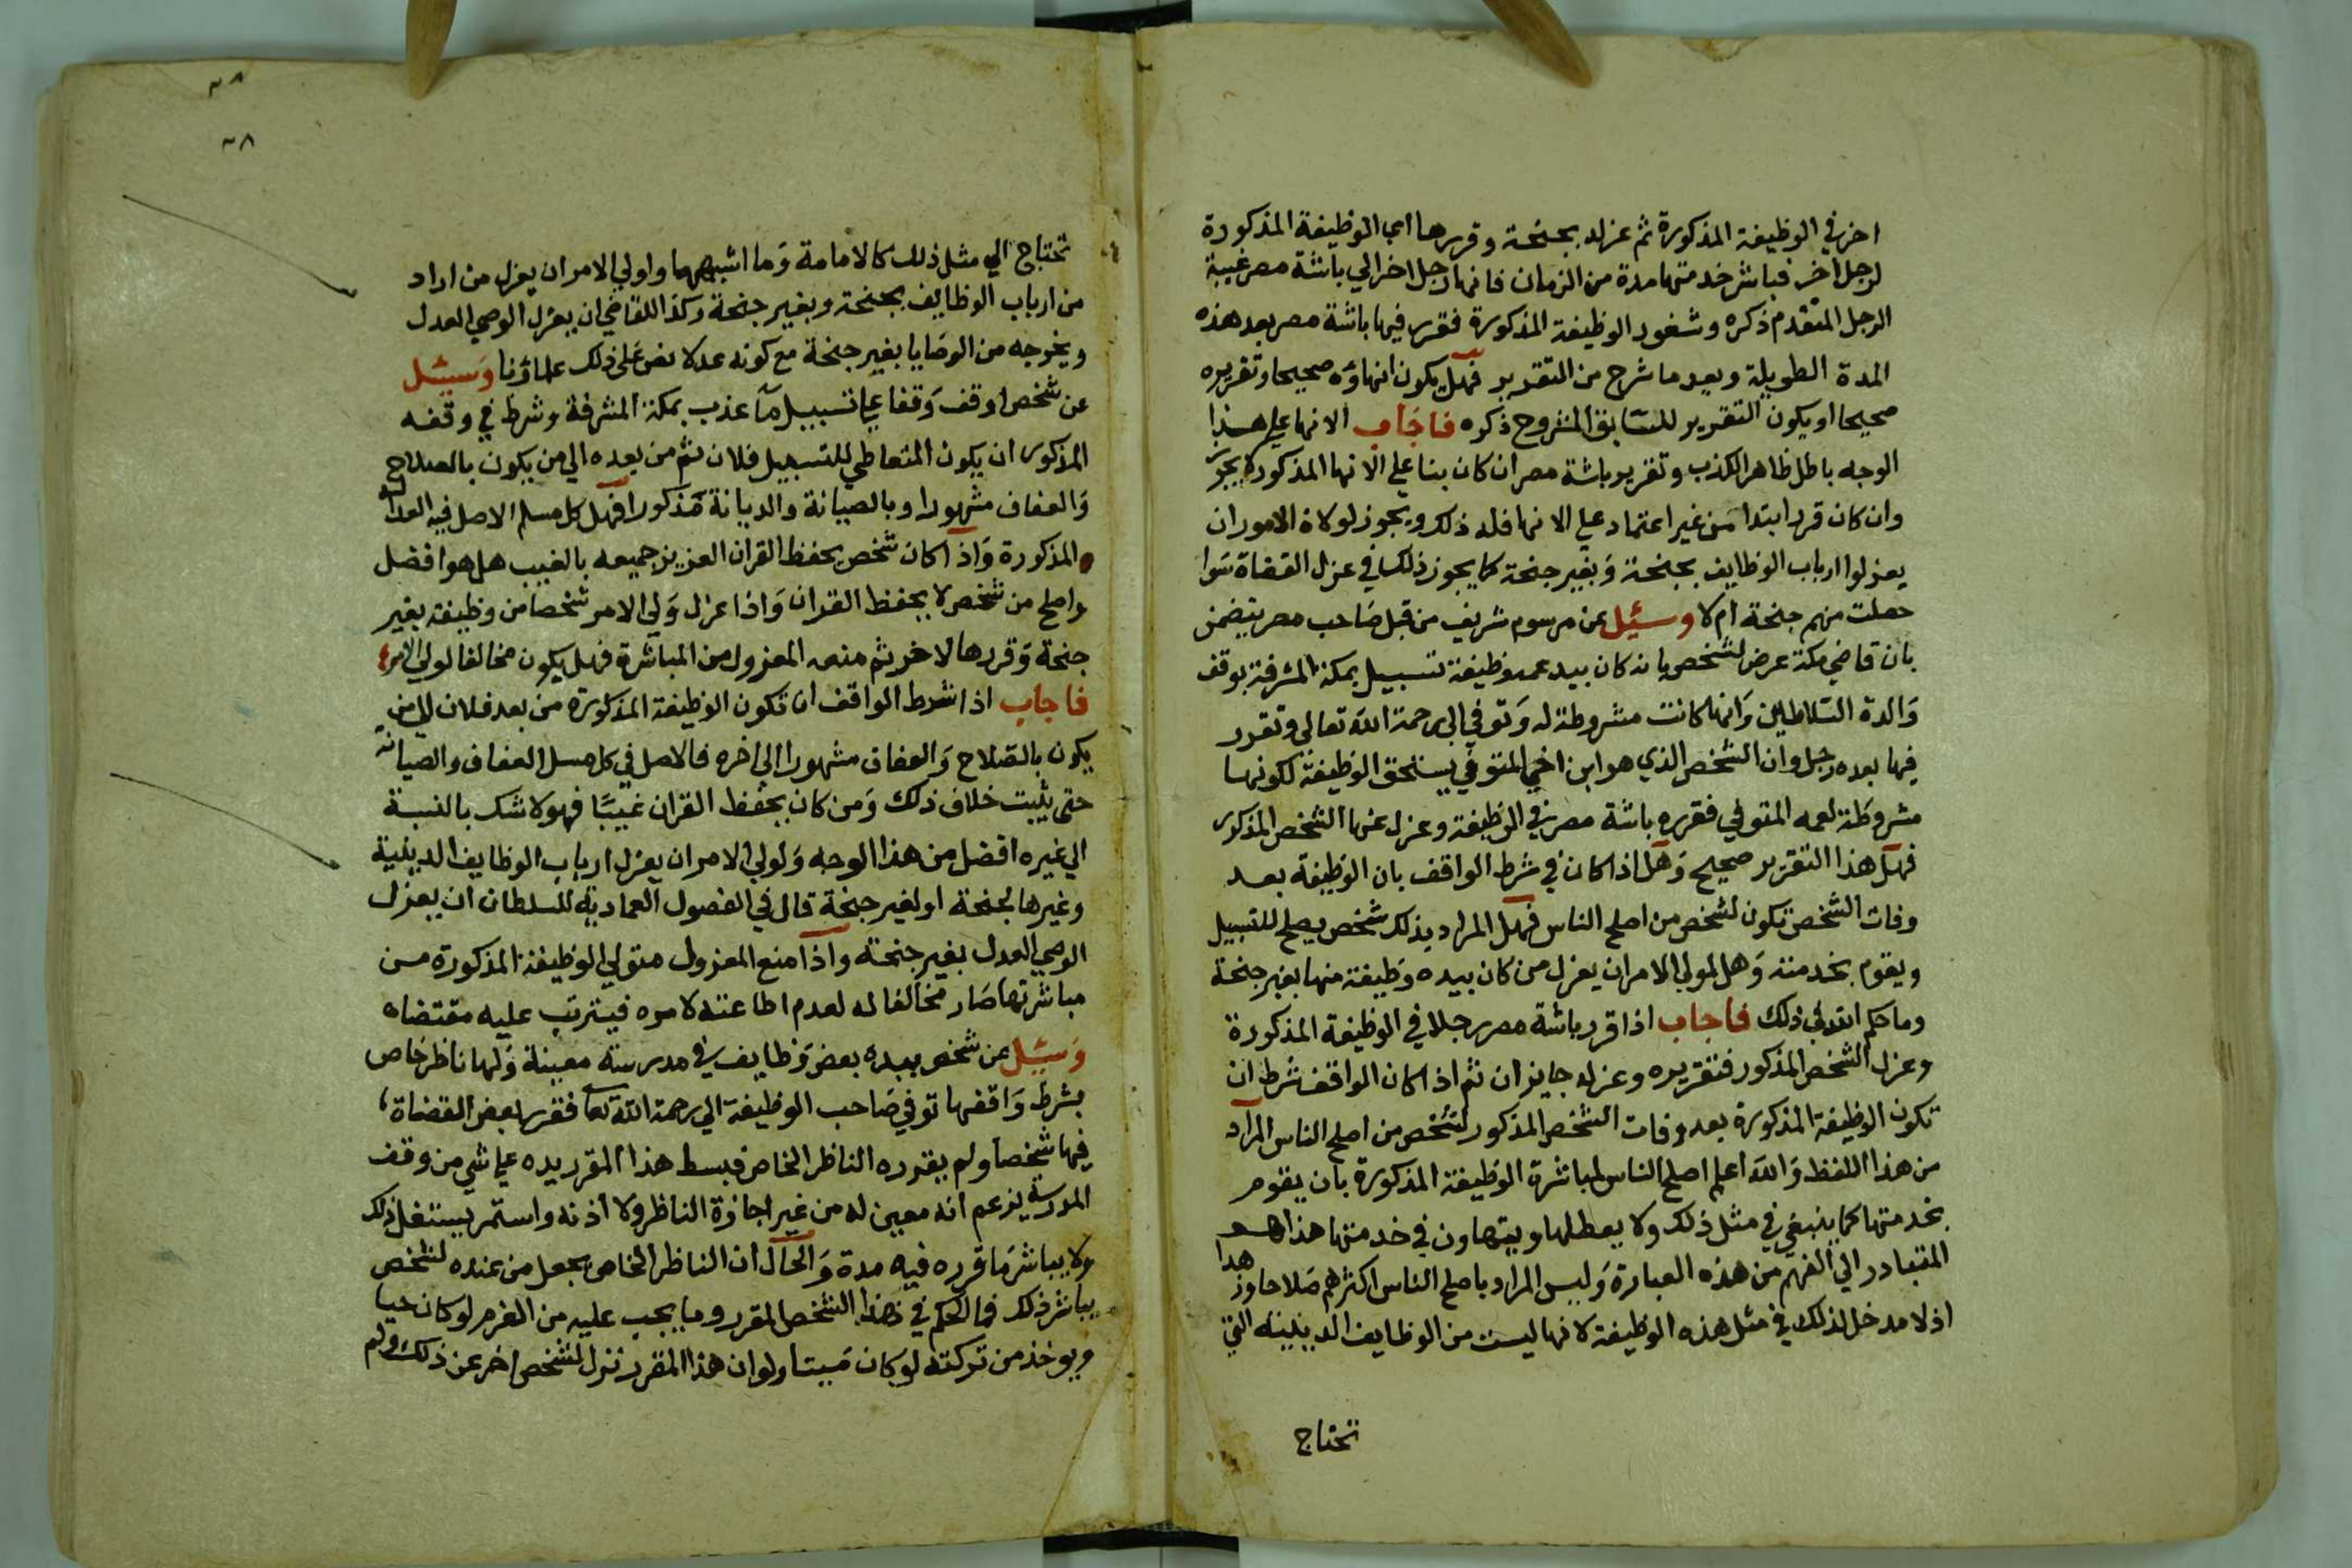 اخر في الوظيفة المذكورة ثم عزله بجنحة وقررها اي الوظيفة المذكورة
لرجل اخر فباشر خدمتها مدة من الزمان فانها رجل اخر الي باشة مصر غيبة
الرجل المتقدم ذكره وشغور الوظيفة المذكورة فقرر فيها باشة مصر بعد هذه
المدة الطويلة وبعد ما شرح من التقرير فهل يكون انهاؤه صحيحا وتقريره
صحيحا او يكون التقرير للسابق المشروح ذكره فاجاب الانها علي هذا
الوجه باطل ظاهر الكذب وتقرير باشة مصر ان كان بنا علي الانها المذكور لا يجوز
وان كان قرر ابتدا من غير اعتماد علي الانها فله ذلك ويجوز لولاة الامور ان
يعزلوا ارباب الوظايف بجنحة وبغير جنحة كما يجوز ذلك في عزل القضاة سوا
حصلت منهم جنحة ام لا وسئيل عن مرسوم شريف من قبل صاحب مصر يتضمن
بان قاضي مكة عرض لشخص بانه كان بيد عمه وظيفة تسبيل بمكة المشرفة بوقف
والدة السلاطين وانها كانت مشروطة له وتوفي الي رحمة الله تعالي وتقرر
فيها بعده رجل وان الشخص الذي هو ابن اخي المتوفي يستحق الوظيفة لكونها
مشروطة لعمه المتوفي فقرره باشة مصر في الوظيفة وعزل عنها الشخص المذكور
فهل هذا التقرير صحيح وهل اذا كان في شرط الواقف بان الوظيفة بعد
وفات الشخص تكون لشخص من اصلح الناس فهل المراد بذلك شخص يصلح للتسبيل
ويقوم بخدمته وهل لمولي الامر ان يعزل من كان بيده وظيفة منها بغير جنحة
وما حكم الله في ذلك فاجاب اذا قرر باشة مصر رجلا في الوظيفة المذكورة
وعزل الشخص المذكور فتقريره وعزله جايزان ثم اذا كان الواقف شرط ان
تكون الوظيفة المذكورة بعد وفات الشخص المذكور لشخص من اصلح الناس المراد
من هذا اللفظ والله اعلم اصلح الناس لمباشرة الوظيفة المذكورة بان يقوم
بخدمتها كما ينبغي في مثل ذلك ولا يعطلها ويتهاون في خدمتها هذا هو
المتبادر الي الفهم من هذه العبارة وليس المراد باصلح الناس اكثرهم صلاحا وزهدا
اذ لا مدخل لذلك في مثل هذه الوظيفة لانها ليست من الوظايف الدينية التي
تحتاج
تحتاج الي مثل ذلك كالامامة وما اشبهها واولي الامر ان يعزل من اراد
من ارباب الوظايف بجنحة وبغير جنحة وكذا للقاضي ان يعزل الوصي العدل
ويخرجه من الوصايا بغير جنحة مع كونه عدلا نص علي ذلك علماؤنا وسيئل
عن شخص اوقف وقفا علي تسبيل مآ عذب بمكة المشرفة وشرط في وقفه
المذكور ان يكون المتعاطي للتسبيل فلان ثم من بعده الي من يكون بالصلاح
والعفاف مشهورا وبالصيانة والديانة مذكورا فهل كل مسلم الاصل فيه العدالة
المذكورة واذا كان شخص يحفظ القران العزيز جميعه بالغيب هل هو افضل
واصلح من شخص لا يحفظ القران واذا عزل ولي الامر شخصا من وظيفة بغير
جنحة وقررها لاخر ثم منعه المعزول من المباشرة فهل يكون مخالفا لولي الامر
فاجاب اذا شرط الواقف ان تكون الوظيفة المذكورة من بعد فلان الي من
يكون بالصلاح والعفاف مشهورا الي اخره فالاصل في كل مسلم العفاف والصيانة
حتي يثبت خلاف ذلك ومن كان يحفظ القران غيبا فهو لا شك بالنسبة
الي غيره افضل من هذا الوجه ولولي الامر ان يعزل ارباب الوظايف الدينية
وغيرها بجنحة او لغير جنحة قال في الفصول العمادية للسلطان ان يعزل
الوصي العدل بغير جنحة واذا منع المعزول متولي الوظيفة المذكورة من
مباشرتها صار مخالفا له لعدم اطاعته لامره فيترتب عليه مقتضاه
وسئيل عن شخص بيده بعض وظايف في مدرسة معينة ولها ناظر خاص
بشرط واقفها توفي صاحب الوظيفة الي رحمة الله تعا فقرر بعض القضاة
فيها شخصا ولم يقرره الناظر الخاص فبسط هذا المقرر يده علي شي من وقف
المدرسة يزعم انه معين له من غير اجازة الناظر ولا اذنه واستمر يستغل ذلك
ولا يباشر ما قرره فيه مدة والحال ان الناظر الخاص يجعل من عنده لشخص
يباشر ذلك فما الحكم في هذا الشخص المقرر وما يجب عليه من الغرم لو كان حيا
ويوخذ من تركته لو كان ميتا ولو ان هذا المقرر نزل لشخص اخر عن ذلك ولم